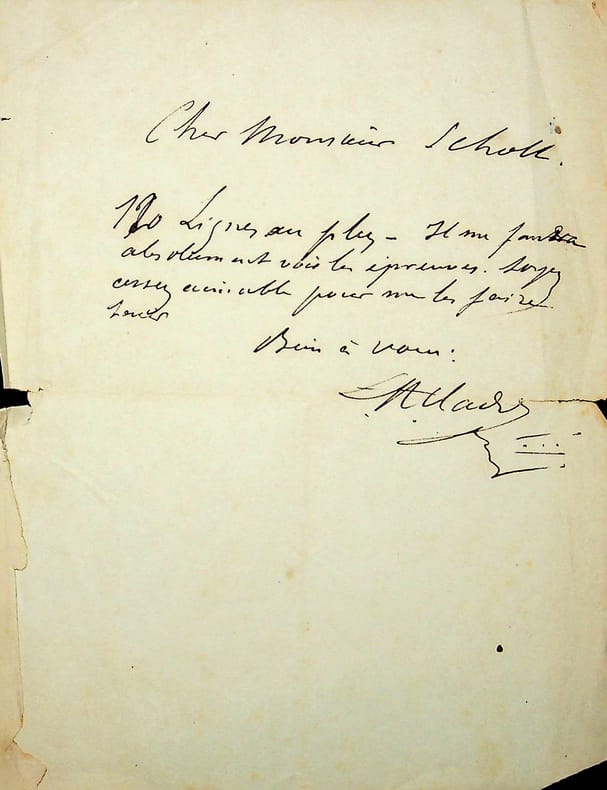 Cher Monsieur Scholl.
120 Lignes au plus – Il me faudra
absolument voir les épreuves. Soyez
assez aimable pour me les faire
tenir
Bien à vous.